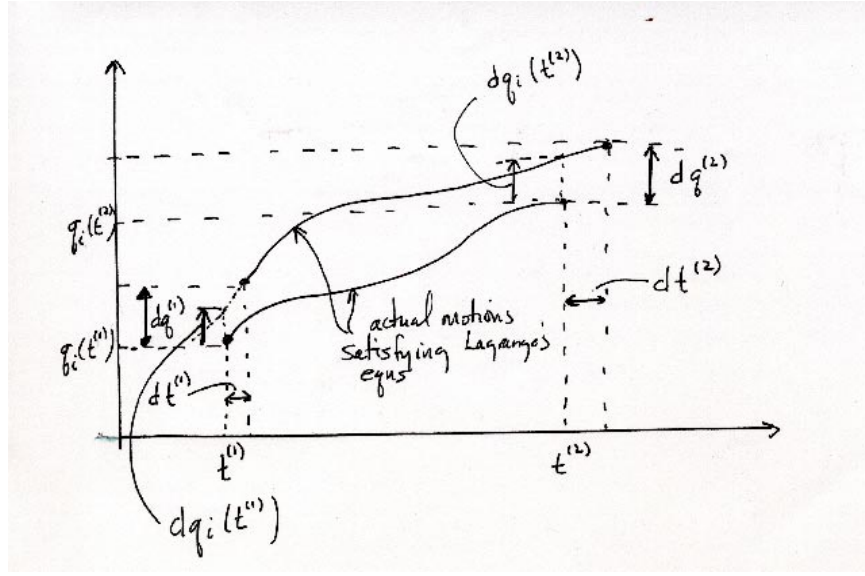 dqᵢ(t⁽²⁾)
dq⁽²⁾
qᵢ(t⁽²⁾)
dt⁽²⁾
dq⁽¹⁾
qᵢ(t⁽¹⁾)
actual motions
satisfying Lagranges
eqns
dt⁽¹⁾
t⁽¹⁾
t⁽²⁾
dqᵢ(t⁽¹⁾)